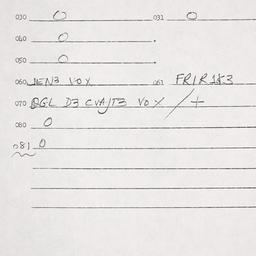 030 0 031 0
040 0
050 0
060 JEN3 VOX 061 FR/R 1&3
070 BGL D3 CVA/T3 VOX /+
080 0
081 0